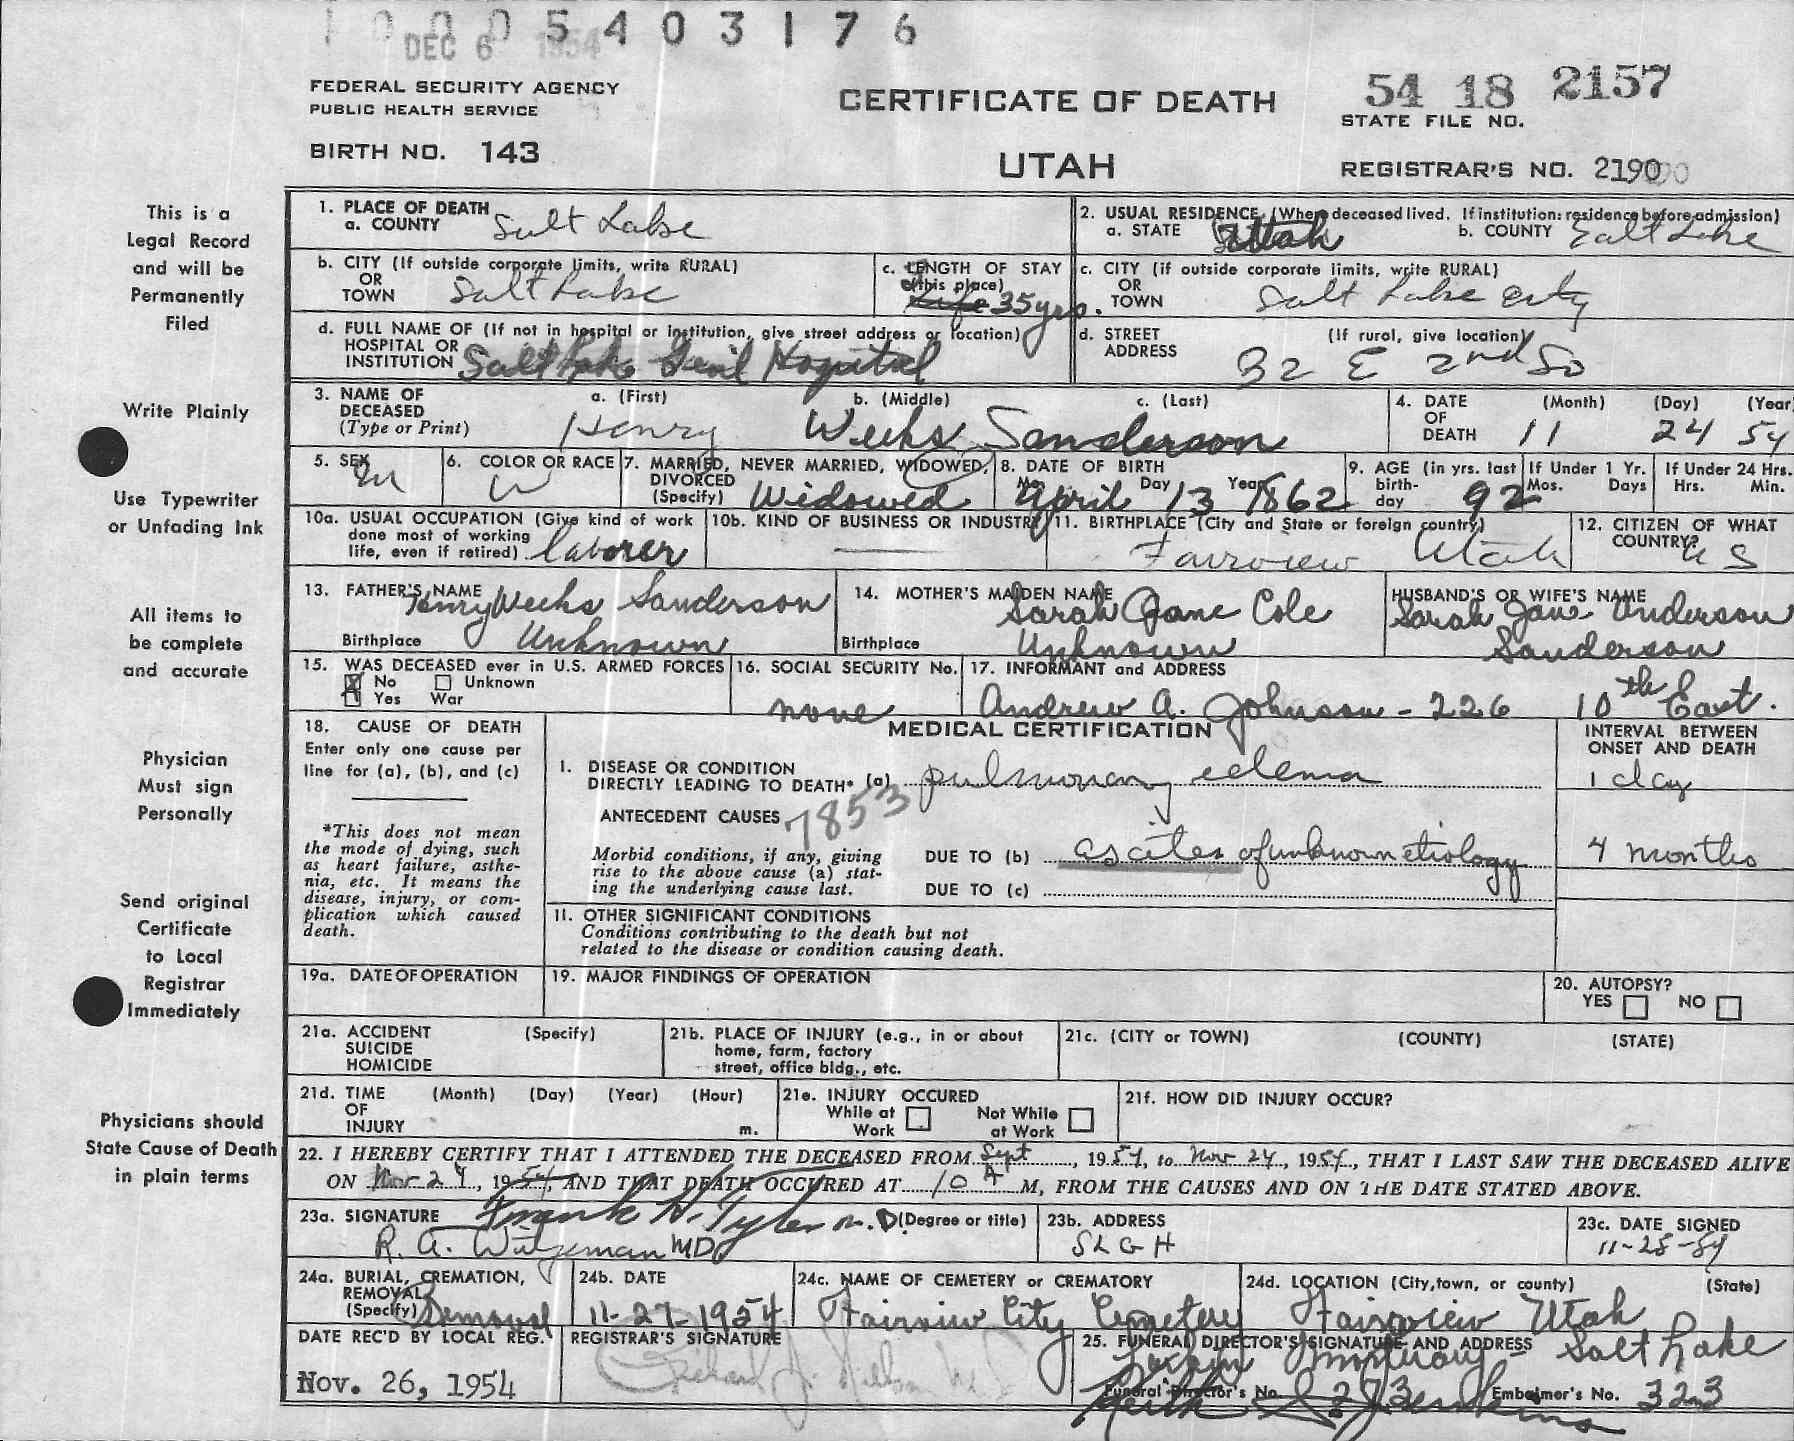 1 0 0 0 5 4 0 3 1 7 6
DEC 6 1954
FEDERAL SECURITY AGENCY
PUBLIC HEALTH SERVICE
BIRTH NO. 143
CERTIFICATE OF DEATH
UTAH
54 18 2157
STATE FILE NO.
REGISTRAR'S NO. 2190
This is a
Legal Record
and will be
Permanently
Filed
Write Plainly
Use Typewriter
or Unfading Ink
All items to
be complete
and accurate
Physician
Must sign
Personally
Send original
Certificate
to Local
Registrar
Immediately
Physicians should
State Cause of Death
in plain terms
1. PLACE OF DEATH
a. COUNTY Salt Lake
2. USUAL RESIDENCE (Where deceased lived. If institution: residence before admission)
a. STATE Utah b. COUNTY Salt Lake
b. CITY (If outside corporate limits, write RURAL)
OR
TOWN Salt Lake
c. LENGTH OF STAY
(this place)
Life 35 yrs.
c. CITY (if outside corporate limits, write RURAL)
OR
TOWN Salt Lake City
d. FULL NAME OF (If not in hospital or institution, give street address or location)
HOSPITAL OR
INSTITUTION Salt Lake Genl Hospital
d. STREET (If rural, give location)
ADDRESS 32 E 2nd So
3. NAME OF DECEASED (Type or Print)
a. (First) b. (Middle) c. (Last)
Henry Weeks Sanderson
4. DATE OF DEATH (Month) (Day) (Year)
11 24 54
5. SEX
M
6. COLOR OR RACE
W
7. MARRIED, NEVER MARRIED, WIDOWED,
DIVORCED
(Specify) Widowed
8. DATE OF BIRTH
Mo. Day Year
April 13 1862
9. AGE (in yrs. last
birth-
day 92
If Under 1 Yr.
Mos. Days
If Under 24 Hrs.
Hrs. Min.
10a. USUAL OCCUPATION (Give kind of work
done most of working
life, even if retired) laborer
10b. KIND OF BUSINESS OR INDUSTRY
11. BIRTHPLACE (City and State or foreign country)
Fairview Utah
12. CITIZEN OF WHAT
COUNTRY?
U S
13. FATHER'S NAME
Henry Weeks Sanderson
Birthplace Unknown
14. MOTHER'S MAIDEN NAME
Sarah Jane Cole
Birthplace Unknown
HUSBAND'S OR WIFE'S NAME
Sarah Jane Anderson
Sanderson
15. WAS DECEASED ever in U.S. ARMED FORCES
X No Unknown
Yes War
16. SOCIAL SECURITY No.
none
17. INFORMANT and ADDRESS
Andrew A. Johnson - 226 10th East.
18. CAUSE OF DEATH
Enter only one cause per
line for (a), (b), and (c)
*This does not mean
the mode of dying, such
as heart failure, asthe-
nia, etc. It means the
disease, injury, or com-
plication which caused
death.
MEDICAL CERTIFICATION
INTERVAL BETWEEN
ONSET AND DEATH
I. DISEASE OR CONDITION
DIRECTLY LEADING TO DEATH* (a) pulmonary edema
1 day
ANTECEDENT CAUSES 7853
Morbid conditions, if any, giving
rise to the above cause (a) stat-
ing the underlying cause last.
DUE TO (b) ascites of unknown etiology
4 months
DUE TO (c)
II. OTHER SIGNIFICANT CONDITIONS
Conditions contributing to the death but not
related to the disease or condition causing death.
19a. DATE OF OPERATION
19. MAJOR FINDINGS OF OPERATION
20. AUTOPSY?
YES NO
21a. ACCIDENT (Specify)
SUICIDE
HOMICIDE
21b. PLACE OF INJURY (e.g., in or about
home, farm, factory
street, office bldg., etc.
21c. (CITY or TOWN) (COUNTY) (STATE)
21d. TIME (Month) (Day) (Year) (Hour)
OF
INJURY m.
21e. INJURY OCCURED
While at Work
Not While at Work
21f. HOW DID INJURY OCCUR?
22. I HEREBY CERTIFY THAT I ATTENDED THE DECEASED FROM Sept, 1954, to Nov 24, 1954, THAT I LAST SAW THE DECEASED ALIVE
ON Nov 24, 1954, AND THAT DEATH OCCURED AT 10 A M, FROM THE CAUSES AND ON THE DATE STATED ABOVE.
23a. SIGNATURE Frank H. Tyler M.D (Degree or title)
R. A. Witzeman MD
23b. ADDRESS
SLGH
23c. DATE SIGNED
11-25-54
24a. BURIAL, CREMATION,
REMOVAL
(Specify) Removal
24b. DATE
11-27-1954
24c. NAME OF CEMETERY or CREMATORY
Fairview City Cemetery
24d. LOCATION (City, town, or county) (State)
Fairview Utah
DATE REC'D BY LOCAL REG.
Nov. 26, 1954
REGISTRAR'S SIGNATURE
25. FUNERAL DIRECTOR'S SIGNATURE AND ADDRESS
Mortuary - Salt Lake
Funeral Director's No. 273 Embalmer's No. 323
Keith S. Jenkins